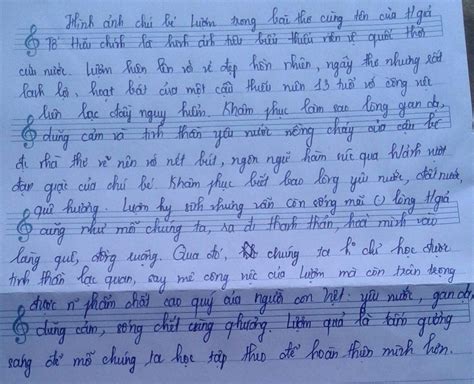 Hình ảnh chú bé Lượm trong bài thơ cùng tên của t/giả
Tố Hữu chính là hình ảnh tiêu biểu thiếu niên vệ quốc thời
cứu nước. Lượm hiện lên với vẻ đẹp hồn nhiên, ngây thơ nhưng rất
lanh lợi, hoạt bát của một cậu thiếu niên 13 tuổi với công việc
liên lạc đầy nguy hiểm. Khâm phục làm sao lòng gan dạ,
dũng cảm và tinh thần yêu nước nồng cháy của cậu bé
đi nhà thơ vẽ nên với nét bút, ngôn ngữ hàm súc qua h/ảnh vượt
đạn giặc của chú bé. Khâm phục biết bao lòng yêu nước, đất nước,
quê hương. Lượm hy sinh nhưng vẫn còn sống mãi () lòng t/giả
cũng như mỗi chúng ta, ra đi thanh thản, hoà mình vào
làng quê, đồng ruộng. Qua đó, chúng ta h chỉ học được
tinh thần lạc quan, say mê công việc của Lượm mà còn trân trọng
được n~ phẩm chất cao quý của người con Việt: yêu nước, gan dạ,
dũng cảm, sống chết cùng phương. Lượm quả là tấm gương
sáng để mỗi chúng ta học tập theo để hoàn thiện mình hơn.